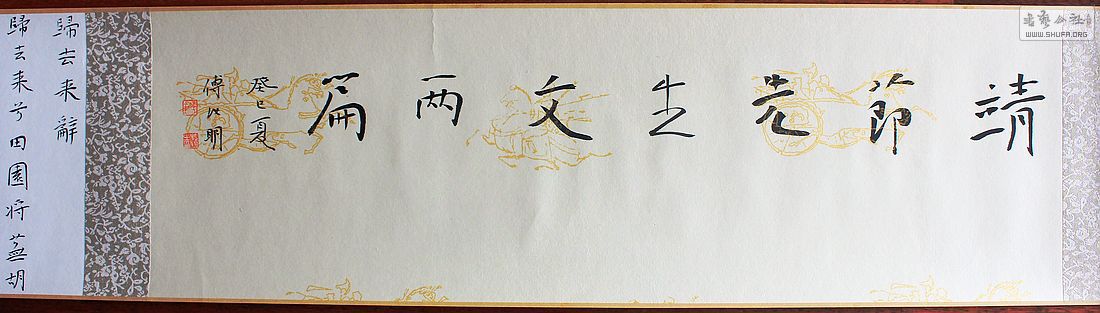 靖節先生文两篇
癸巳夏
傅
明
歸去来辭
歸去来兮田園将蕪胡
WWW.SHUFA.ORG